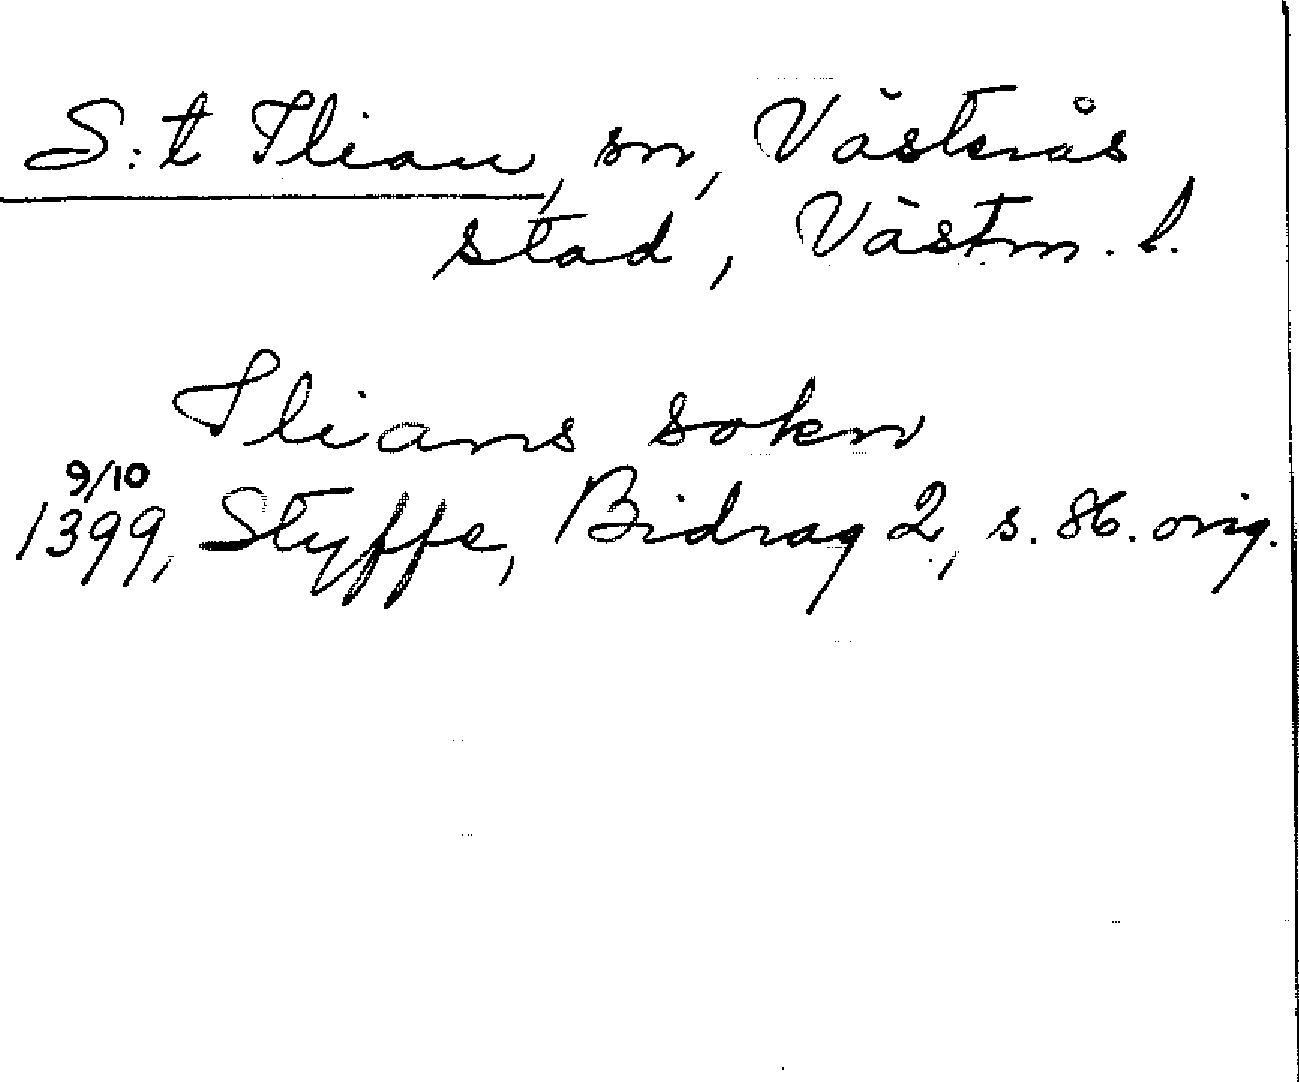 S:t Ilian, sn, Västerås
stad, Västm. l.
Ilians sokn
9/10
1399, Styffe, Bidrag 2, s. 86. orig.